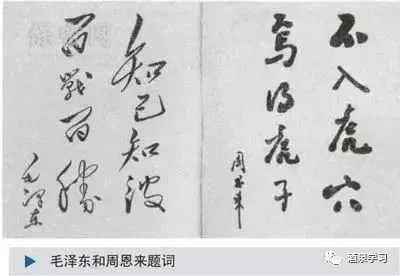 不入虎穴
焉得虎子
周恩来
知己知彼
百戰百勝
毛泽东
毛泽东和周恩来题词
酒泉学习